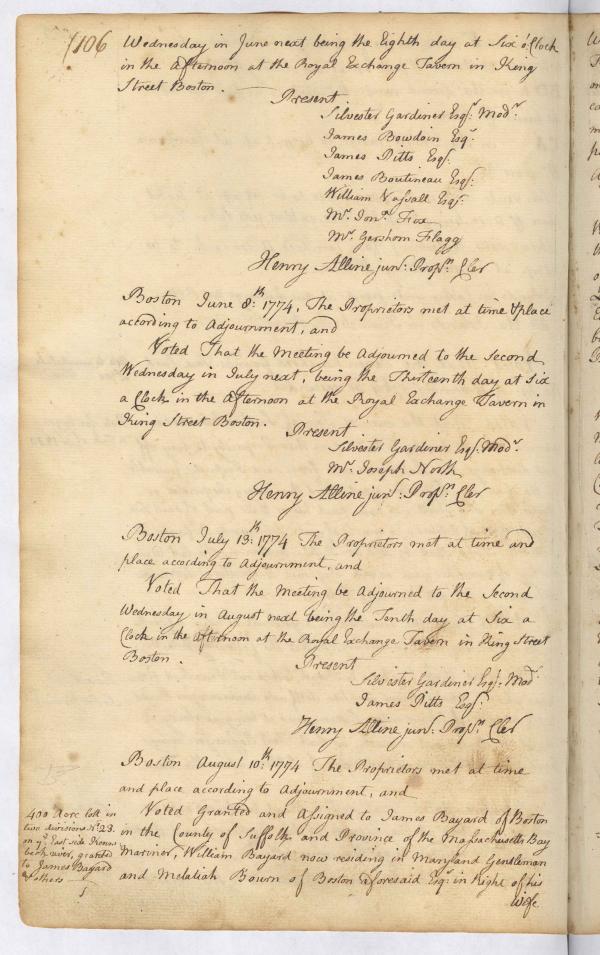 106
Wednesday in June next being the Eighth day at Six o'Clock
in the Afternoon at the Royal Exchange Tavern in King
Street Boston.
Present
Silvester Gardiner Esqr. Modr.
James Bowdoin Esqr.
James Pitts Esqr.
James Boutineau Esqr.
William Vassall Esqr.
Mr. Jonn. Fox
Mr. Gershom Flagg
Henry Alline junr. Proprs. Cler
Boston June 8th. 1774, The Proprietors met at time & place
according to Adjournment, and
Voted That the Meeting be Adjourned to the Second
Wednesday in July next, being the Thirteenth day at Six
a Clock in the Afternoon at the Royal Exchange Tavern in
King Street Boston.
Present
Silvester Gardiner Esqr. Modr.
Mr. Joseph North
Henry Alline junr. Proprs. Cler
Boston July 13th. 1774 The Proprietors met at time and
place according to Adjournment, and
Voted That the Meeting be Adjourned to the Second
Wednesday in August next being the Tenth day at Six a
Clock in the Afternoon at the Royal Exchange Tavern in King Street
Boston.
Present
Silvester Gardiner Esqr. Modr.
James Pitts Esqr.
Henry Alline junr. Proprs. Cler
Boston August 10th. 1774 The Proprietors met at time
and place according to Adjournment, and
Voted Granted and Assigned to James Bayard of Boston
in the County of Suffolk and Province of the Massachusetts Bay
Mariner, William Bayard now residing in Maryland Gentleman
and Melatiah Bourn of Boston aforesaid Esqr. in Right of his
Wife
400 Acre lott in
two divisions No. 23.
on ye. East side Kenne
beck river, granted
to James Bayard
& others